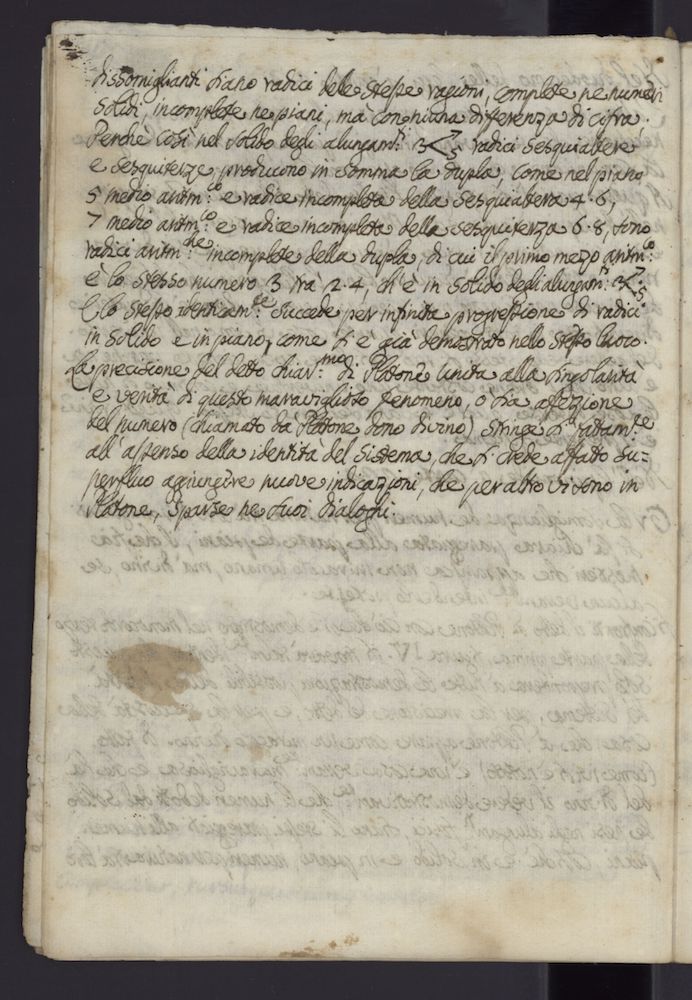 dissomiglianti siano radici delle stesse ragioni, complete ne numeri
solidi, incomplete ne piani, mà con niuna differenza di cifra.
Perchè così nel solido degli alungam.ti 3< 5 radici sesquialtere
e sesquiterze producono in somma la dupla, come nel piano
5 medio aritm:co e radice incompleta della sesquialtera 4. 6,
7 medio aritm:co e radice incompleta della sesquiterza 6. 8, sono
radici aritm:che incomplete della dupla, di cui il primo mezo aritm:co
è lo stesso numero 3 trà 2. 4, ch'è in solido degli alungam:ti 3< 5.
E lo stesso identicam:te succede per infinita progressione di radici
in solido e in piano, come si è già demostrato nello stesso luoco.
La precisione del detto chiar:mo di Platone unita alla singolarità
e verità di questo maraviglioso fenomeno, ò sia afezzione
del numero (chiamato da Platone dono divino) stringe sì fattam:te
all'assenso della identità del Sistema, che si crede affatto su=
perfluo agiungere nuove indicazioni, che per altro vi sono in
Platone, sparse ne suoi dialoghi.